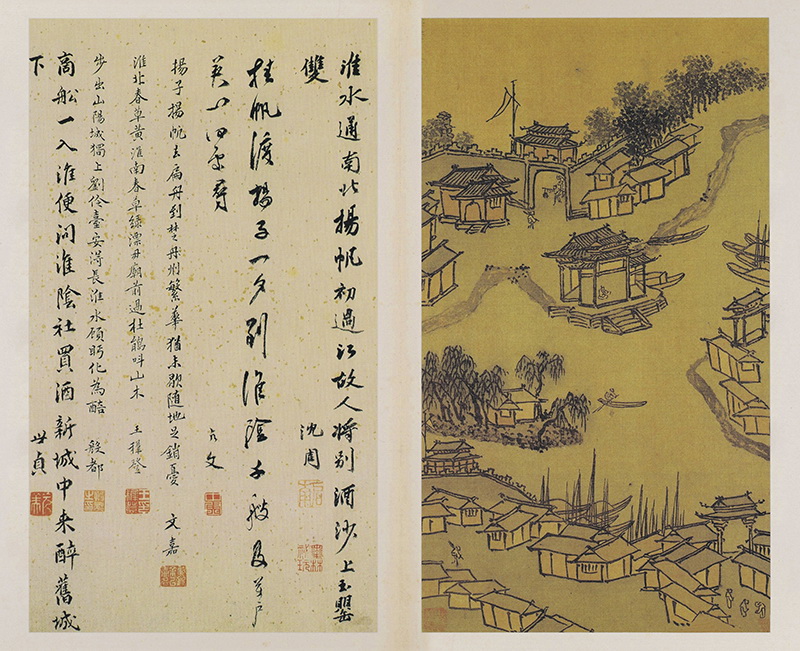 淮水通南北揚帆初過江故人將別酒沙上玉罌
雙 沈周
挂帆渡揚子一夕到淮陰千艘及萬戶
揚子揚帆去扁舟到楚州繁華猶未歇隨地足銷憂
文嘉
淮北春草黃淮南春草綠漂母廟前過杜鵑叫山木 王穉登
步出山陽城獨上劉伶臺安得長淮水顧眄化為醅 殷都
商舩一入淮便問淮陰社買酒新城中来醉舊城
下 世貞